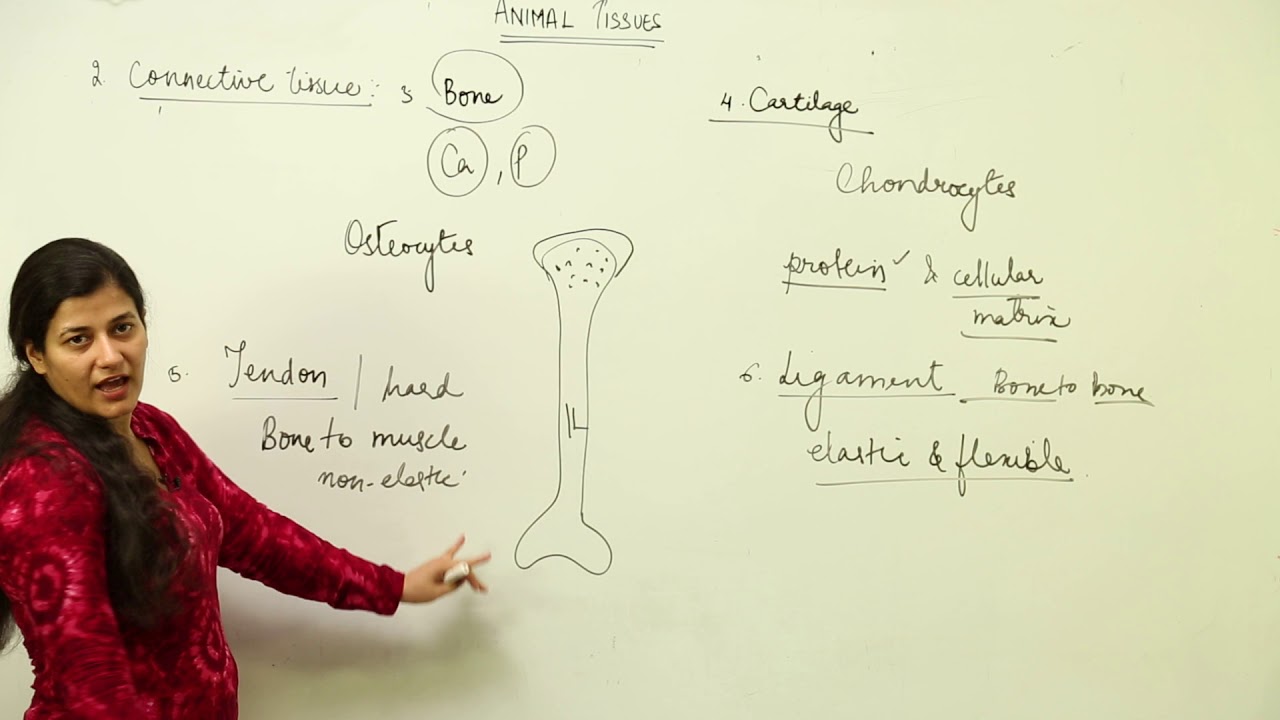 ANIMAL TISSUES
2. Connective tissue: 3 Bone
Ca, P
Osteocytes
4. Cartilage
Chondrocytes
protein ✓ & cellular
matrix
5. Tendon / hard
Bone to muscle
non-elastic
6. Ligament Bone to bone
elastic & flexible